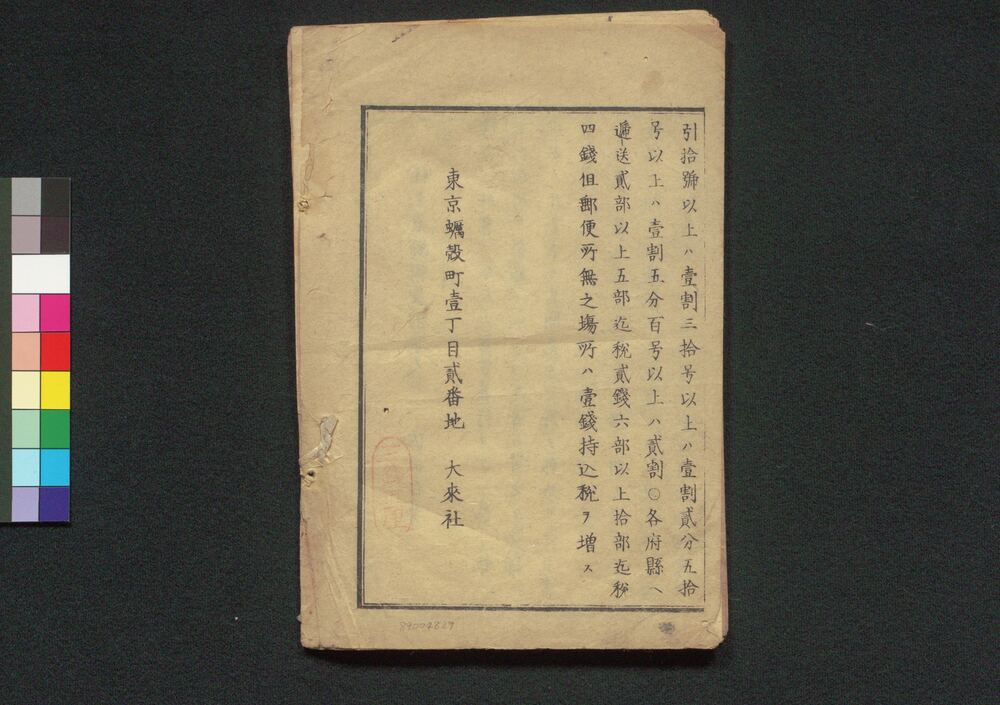 引拾號以上ハ壹割三拾号以上ハ壹割貳分五拾
号以上ハ壹割五分百号以上ハ貳割〇各府縣ヘ
遞送貳部以上五部迄税貳錢六部以上拾部迄税
四錢但郵便所無之塲所ハ壹錢持込税ヲ増ス
東京蠣殼町壹丁目貳番地 大來社
89004829